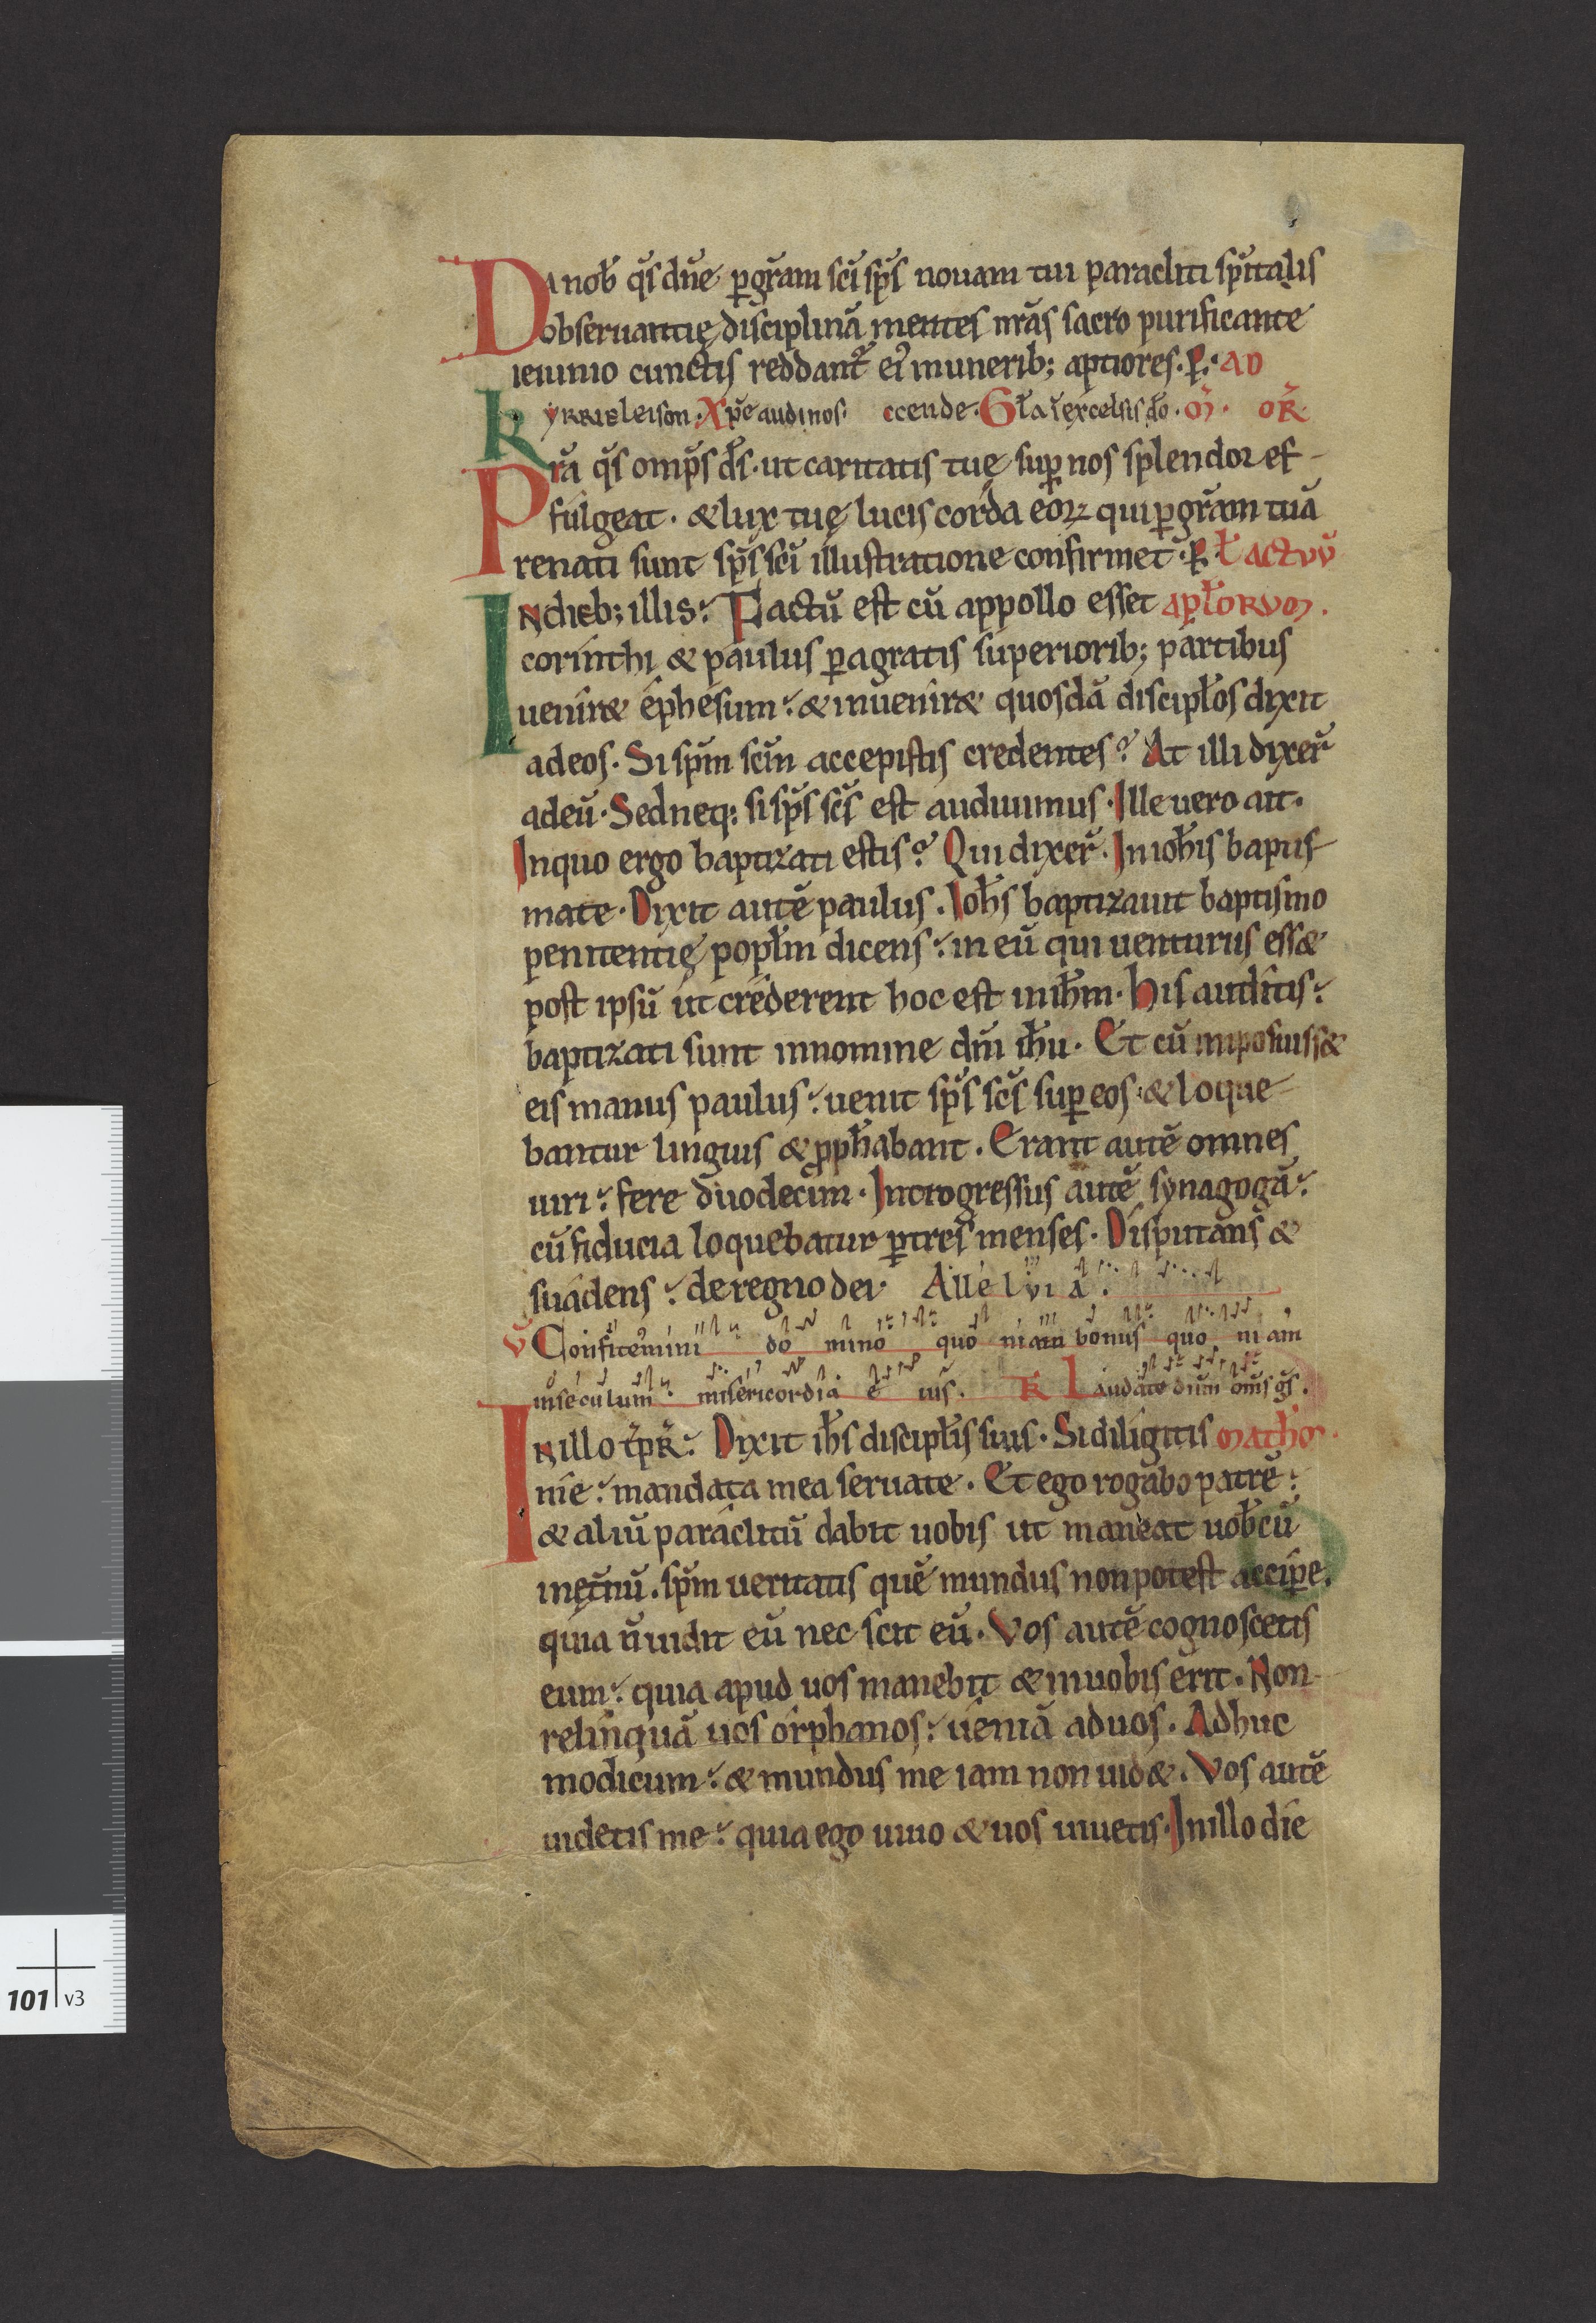 Da nob̄ q̄s dn̄e ꝑ gr̄am sc̄i sp̄s nouam tui paracliti sp̄italis
obseruantię disciplinā mentes nr̄as sacro purificante
ieiunio cunctis reddant̄ ei muneribꝫ aptiores. ꝑ. AD
KYRRIEleison. Xp̄e audi nos. ccende. Gl̄a ī excelsis dō. Oɱ̄. OR̄
Pr̄a q̄s omp̄s d̄s. ut caritatis tuę suꝑ nos splendor ef-
fulgeat. & lux tuę lucis corda eoꝝ qui ꝑ gr̄am tuā
renati sunt sp̄s sc̄i illustratione confirmet. ꝑ. L̄ actuū
IN diebꝫ illis. Factū est cū appollo esset apl̄orum.
corinthi & paulus ꝑagratis superioribꝫ partibus
uenir& ephesum. & inuenir& quosdā discipl̄os dixit
ad eos. Si sp̄m sc̄m accepistis credentes? At illi dixer̄
ad eū. Sed neqꝫ si sp̄s sc̄s est audiuimus. Ille uero ait.
In quo ergo baptizati estis? Qui dixer̄. In ioh̄is baptis-
mate. Dixit autē paulus. Ioh̄s baptizauit baptismo
penitentię popl̄m dicens. in eū qui uenturus ess&
post ipsū ut crederent hoc est in ih̄m. His auditis.
baptizati sunt in nomine dn̄i ih̄u. Et cū imposuiss&
eis manus paulus. uenit sp̄s sc̄s suꝑ eos. & loque-
bantur linguis & ꝓph̄abant. Erant autē omnes
uiri. fere duodecim. Introgressus autē synagogā.
cū fiducia loquebatur ꝑ tres menses. Disputans &
suadens. de regno dei. Allelvia.
V̄ Confitemini do mino quo niam bonus quo niam
in seculum misericordia e ius. TR̄ Laudate dn̄m om̄s gs̄.
IN illo t̄pR̄. Dixit ih̄s discipl̄is suis. Si diligitis
me. mandata mea seruate. Et ego rogabo patrē.
& aliū paraclitū dabit uobis ut maneat uob̄cū
in ęt̄nū. sp̄m ueritatis quē mundus non potest acciꝑe.
quia n̄ uidit eū nec scit eū. Vos autē cognoscetis
eum. quia apud uos manebit & in uobis erit. Non
relinquā uos orphanos. ueniā ad uos. Adhuc
modicum. & mundus me iam non uid&. Vos autē
uidetis me. quia ego uiuo & uos uiuetis. In illo die
101 v3